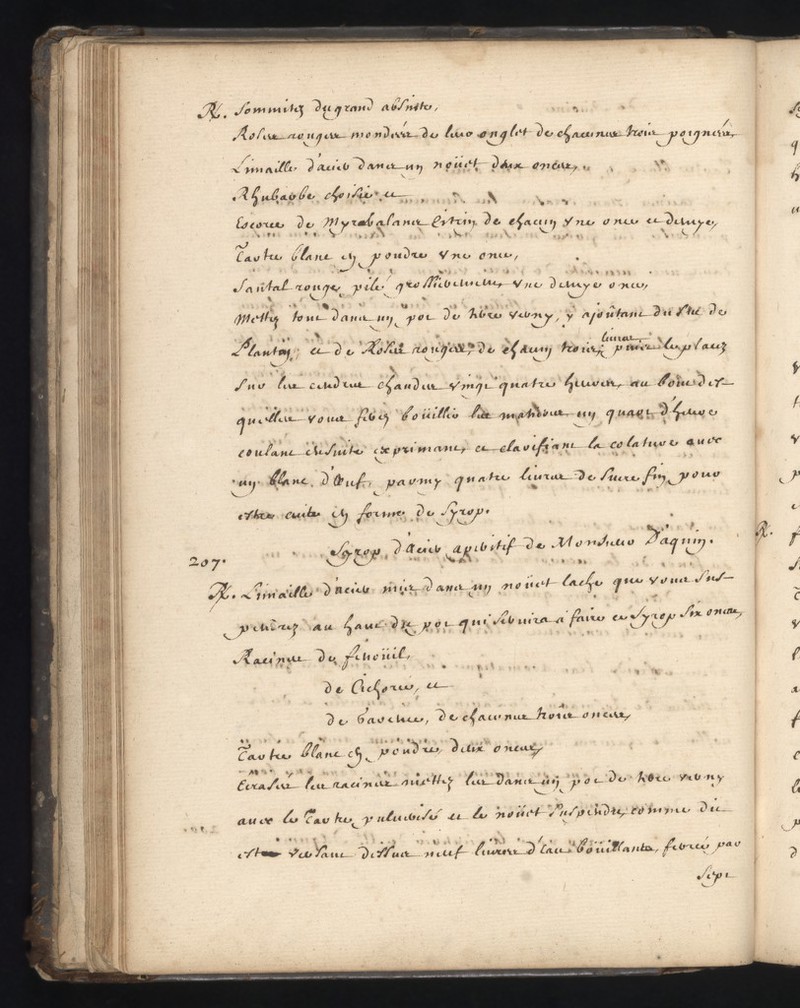 ℞. Sommitez du grand absinte,
Roses rouges mondées de leurs onglet de chacunes trois poignées,
Limaille d'acier dans un noüet deux onces,
Rhubarbe choisie et
Escorce de Myrabalans Citrin de chacun Vne once et demye,
Tartre blanc en poudre Vne once,
Santal rouge pilé grossierement Vne demye once,
Mettez tout dans un pot de terre verny, y ajoûtant du Suc de
Plantin, et de Roses rouges, de chacun trois livres puis les placez
Sur les cendres chaudes vingt quatre heures, au bout des-
quelles vous ferez boüillir les matieres un quart d'heure
coulant ensuite exprimant, et clarifiant la colature avec
un blanc d'œuf, parmy quatre livres de Sucre fin pour
estre cuite en forme de Syrop.
207. Syrop d'acier aperitif de Monsieur Daquin.
℞. Limaille d'acier mise dans un noüet lache que vous Sus-
pendrez au haut du pot qui Servira à faire ce Syrop Six onces,
Racines de fenoüil,
de Cichorée, et
de Garence, de chacune trois onces,
Tartre blanc en poudre deux onces,
Ecrasez les racines mettez les dans un pot de terre verny
avec le Tartre pulverisé et le noüet Suspendu, comme dit
est versant dessus neuf livres d'eau boüillante, ferez par
Sept